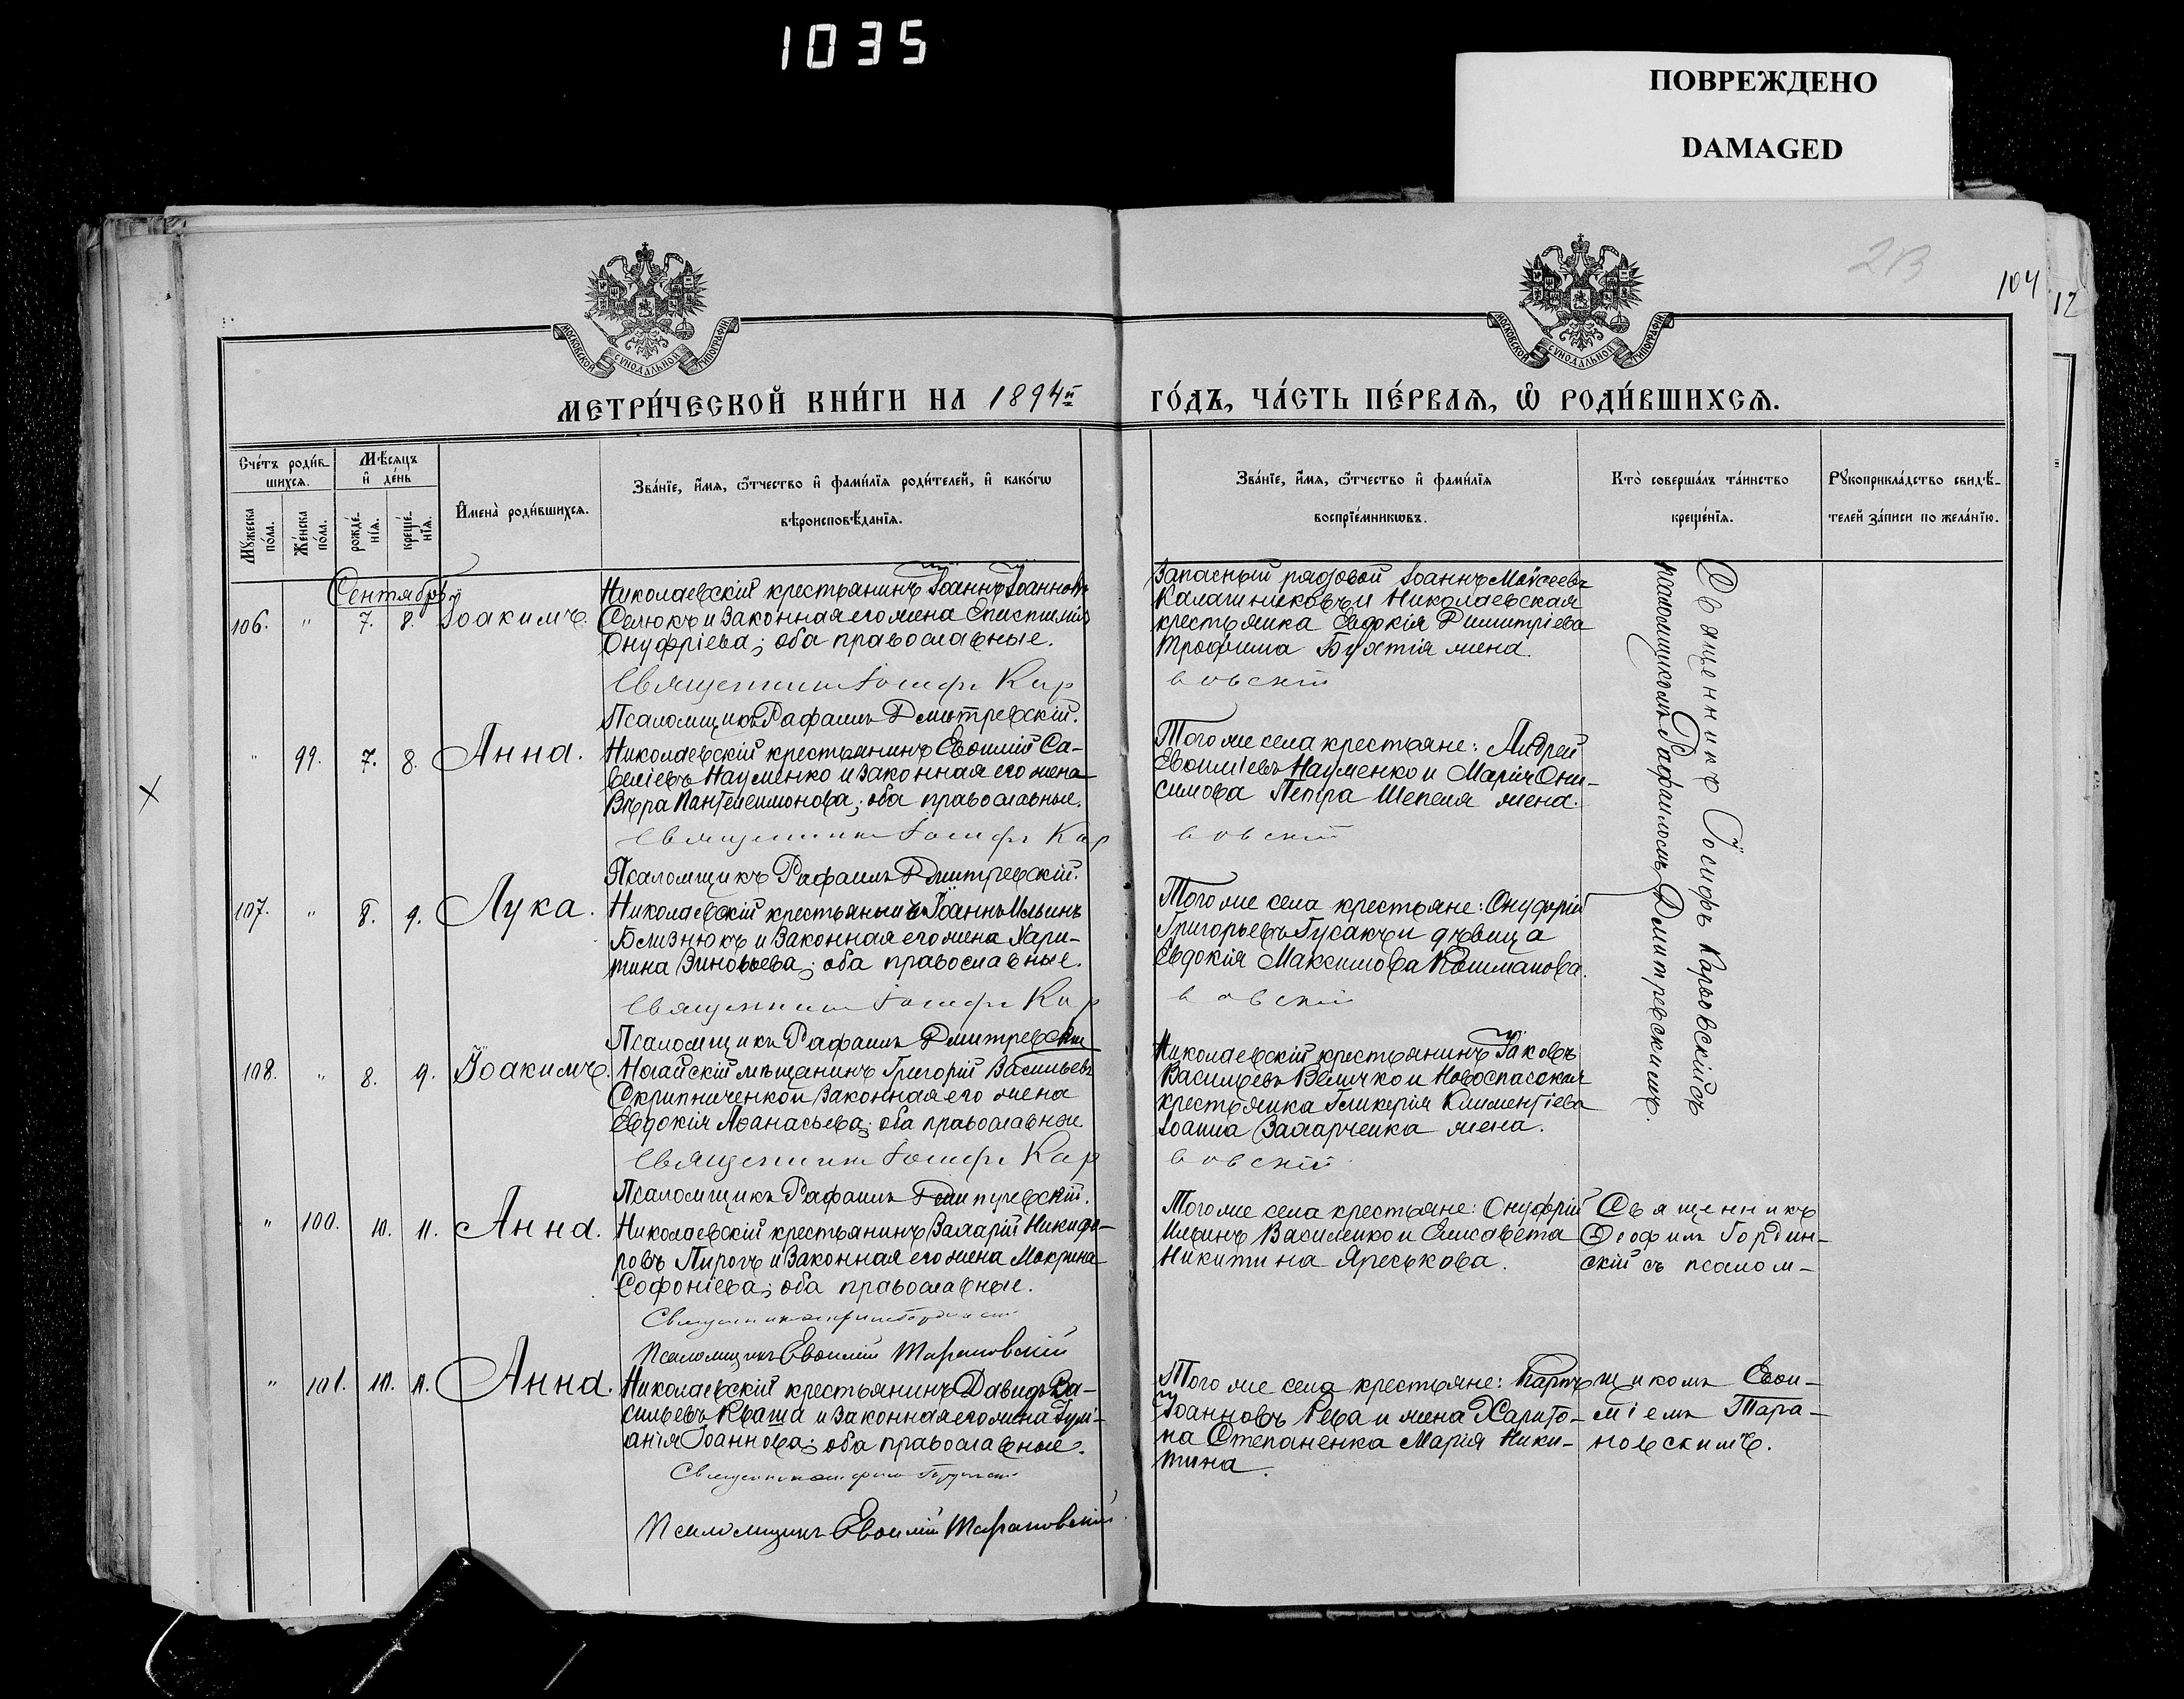 1035
ПОВРЕЖДЕНО
DAMAGED
2В
104
12
МОСКОВСКОЙ СѴНОДАЛЬНОЙ ТИПОГРАФІИ
МОСКОВСКОЙ СѴНОДАЛЬНОЙ ТИПОГРАФІИ
МЕТРИ́ЧЕСКОЙ КНИ́ГИ НА 1894й
ГО́ДЪ, ЧА́СТЬ ПЕ́РВАѦ, Ѽ РОДИ́ВШИХСѦ.
Сче́тъ роди́вшихсѧ.
Мꙋ́жеска по́ла.
Же́нска по́ла.
Мѣ́сѧцъ и҆ де́нь
рожде́нїѧ.
креще́нїѧ.
И҆мена̀ роди́вшихсѧ.
Зва́нїе, и҆́мѧ, ѻ҆́тчество и҆ фами́лїѧ роди́телей, и҆ како́гѡ
вѣроисповѣ́данїѧ.
Зва́нїе, и҆́мѧ, ѻ҆́тчество и҆ фами́лїѧ
воспрїе́мникѡвъ.
Кто̀ соверша́лъ та́инство
креще́нїѧ.
Рꙋкоприкла́дство свидѣ́-
телей за́писи по жела́нїю.
Сентябрь
106. " 7. 8. Іоакимъ.
Николаевскій крестьянинъ Іоаннъ Іоанновъ
Селюкъ и законная его жена Епистимія
Онуфріева; оба православные.
Священникъ Іосифъ Кар
Псаломщикъ Рафаилъ Дмитревскій.
Запасный рядовой Іоаннъ Моѵсеевъ
Калашниковъ и Николаевская
крестьянка Евдокія Димитріева
Трофима Бухтія жена.
вовскій
Священникъ Іосифъ Карвовскій съ
псаломщикомъ Рафаиломъ Дмитревскимъ.
" 99. 7. 8. Анна.
Николаевскій крестьянинъ Евѳимій Са-
веліевъ Науменко и законная его жена
Вѣра Пантелеимонова; оба православные.
Священникъ Іосифъ Кар
Псаломщикъ Рафаилъ Дмитревскій.
Того же села крестьяне: Андрей
Евѳиміевъ Науменко и Марія Они-
симова Петра Шепеля жена.
вовскій
107. " 8. 9. Лука.
Николаевскій крестьянинъ Іоаннъ Ильинъ
Близнюкъ и законная его жена Хари-
тина Зиновьева; оба православные.
Священникъ Іосифъ Кар
Псаломщикъ Рафаилъ Дмитревскій
Того же села крестьяне: Онуфрій
Григорьевъ Гусакъ и дѣвица
Евдокія Максимова Кошманова.
вовскій
108. " 8. 9. Іоакимъ.
Ногайскій мѣщанинъ Григорій Васильевъ
Скрипниченко и законная его жена
Евдокія Аѳанасьева; оба православные
Священникъ Іосифъ Кар
Псаломщикъ Рафаилъ Дмитревскій.
Николаевскій крестьянинъ Іаковъ
Васильевъ Величко и Новоспасская
крестьянка Гликерія Климентіева
Іоанна Захарченка жена.
вовскій
" 100. 10. 11. Анна.
Николаевскій крестьянинъ Захарій Никифо-
ровъ Пирогъ и законная его жена Макрина
Софоніева; оба православные.
Псаломщикъ Евѳимій Тарановскій
Того же села крестьяне: Онуфрій
Ильинъ Василенко и Елисавета
Никитина Яреськова.
Священникъ
Ѳеофилъ Гордин-
скій съ псалом-
" 101. 10. 11. Анна.
Николаевскій крестьянинъ Давидъ Ва-
сильевъ Кваша и законная его жена Іулі-
анія Іоаннова; оба православные.
Псаломщикъ Евѳимій Тарановскій.
Того же села крестьяне: Карпъ
Іоанновъ Рева и жена Харито-
на Степаненка Марія Ники-
тина.
щикомъ Евѳи-
міемъ Тара-
новскимъ.